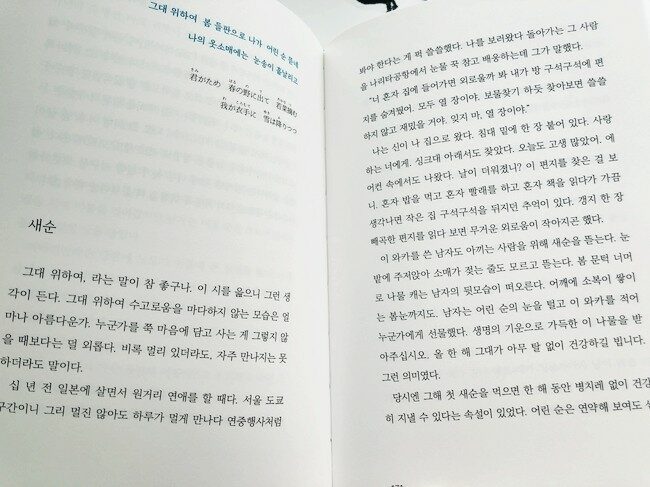 그대 위하여 봄 들판으로 나가 어린 순 뜯네
나의 옷소매에는 눈송이 흩날리고
君がため 春の野に出て 若菜摘む
我が衣手に 雪は降りつつ
새순
그대 위하여, 라는 말이 참 좋구나. 이 시를 읊으니 그런 생
각이 든다. 그대 위하여 수고로움을 마다하지 않는 모습은 얼
마나 아름다운가. 누군가를 쭉 마음에 담고 사는 게 그렇지 않
을 때보다는 덜 외롭다. 비록 멀리 있더라도, 자주 만나지는 못
하더라도 말이다.
십 년 전 일본에 살면서 원거리 연애를 할 때다. 서울 도쿄
구간이니 그리 멀진 않아도 하루가 멀게 만나다 연중행사처럼
봐야 한다는 게 퍽 쓸쓸했다. 나를 보러왔다 돌아가는 그 사람
을 나리타공항에서 눈물 꾹 참고 배웅하는데 그가 말했다.
"너 혼자 집에 들어가면 외로울까 봐 내가 방 구석구석에 편
지를 숨겨뒀어. 모두 열 장이야. 보물찾기 하듯 찾아보면 쓸쓸
하지 않고 재밌을 거야. 잊지 마, 열 장이야."
나는 신이 나 집으로 왔다. 침대 밑에 한 장 붙어 있다. 사랑
하는 너에게. 싱크대 아래서도 찾았다. 오늘도 고생 많았어. 에
어컨 속에서도 나왔다. 날이 더워졌니? 이 편지를 찾은 걸 보
니. 혼자 밥을 먹고 혼자 빨래를 하고 혼자 책을 읽다가 가끔
생각나면 작은 집 구석구석을 뒤지던 추억이 있다. 갱지 한 장
빼곡한 편지를 읽다 보면 무거운 외로움이 작아지곤 했다.
이 와카를 쓴 남자도 아끼는 사람을 위해 새순을 뜯는다. 눈
밭에 주저앉아 소매가 젖는 줄도 모르고 뜯는다. 봄 문턱 너머
로 나물 캐는 남자의 뒷모습이 떠오른다. 어깨에 소복이 쌓이
는 봄눈까지도. 남자는 어린 순의 눈을 털고 이 와카를 적어
누군가에게 선물했다. 생명의 기운으로 가득한 이 나물을 받
아주십시오. 올 한 해 그대가 아무 탈 없이 건강하길 빕니다.
그런 의미였다.
당시엔 그해 첫 새순을 먹으면 한 해 동안 병치레 없이 건강
히 지낼 수 있다는 속설이 있었다. 어린 순은 연약해 보여도